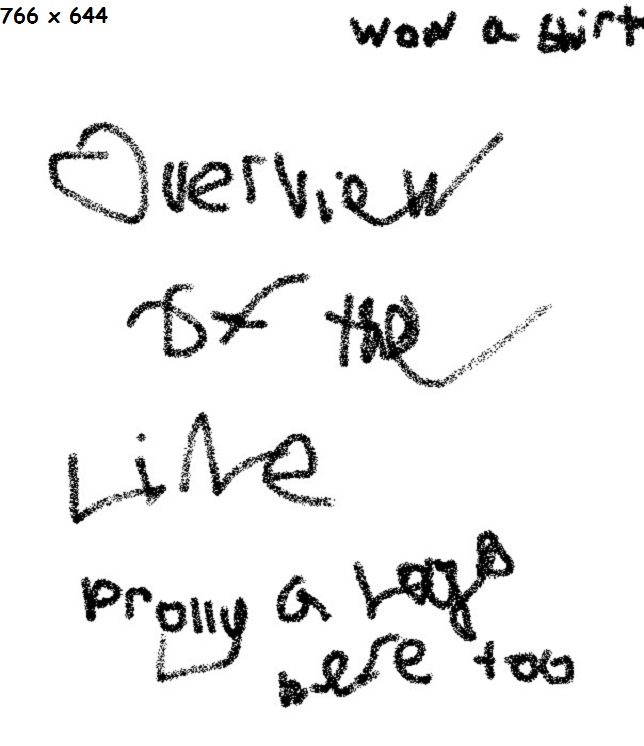 766 x 644
wow a shirt
Overview
of the
Line
prolly a Logo
here too